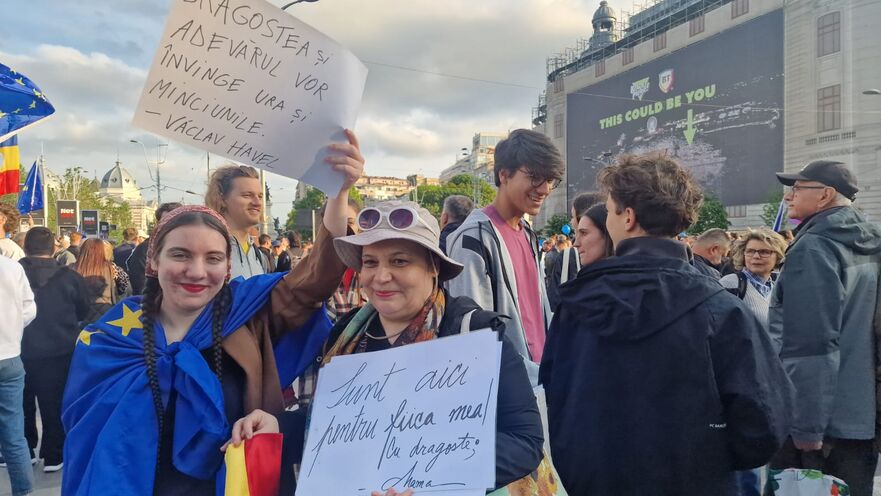 DRAGOSTEA ȘI
ADEVĂRUL VOR
ÎNVINGE URA ȘI
MINCIUNILE.
- VÁCLAV HAVEL
BT
THIS COULD BE YOU
Net
Sunt aici
pentru fiica mea!
Cu dragoste,
- Mama